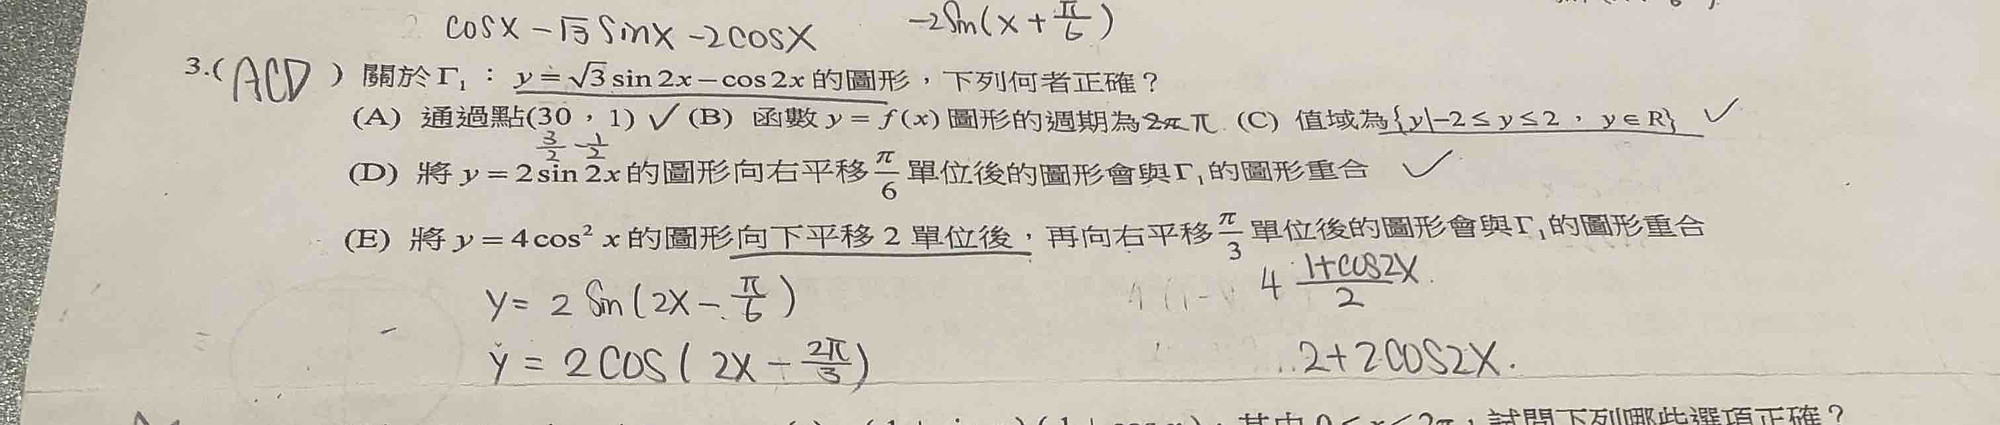 cosx − √3 sinx − 2cosx −2Sin(x + π/6)
3.( ACD ) 關於Γ₁：y = √3 sin 2x − cos 2x 的圖形，下列何者正確？
(A) 通過點(30，1) ✓ (B) 函數 y = f(x) 圖形的週期為 2π π (C) 值域為{y|−2 ≤ y ≤ 2，y ∈ R} ✓
3/2 −1/2
(D) 將 y = 2 sin 2x 的圖形向右平移 π/6 單位後的圖形會與Γ₁的圖形重合 ✓
(E) 將 y = 4 cos² x 的圖形向下平移 2 單位後，再向右平移 π/3 單位後的圖形會與Γ₁的圖形重合
y = 2 Sin(2x − π/6) 4 (1+cos2x)/2
y = 2cos(2x − 2π/3) 2+2cos2x.
其中 0 ≤ x ≤ 2π，試問下列哪些選項正確？